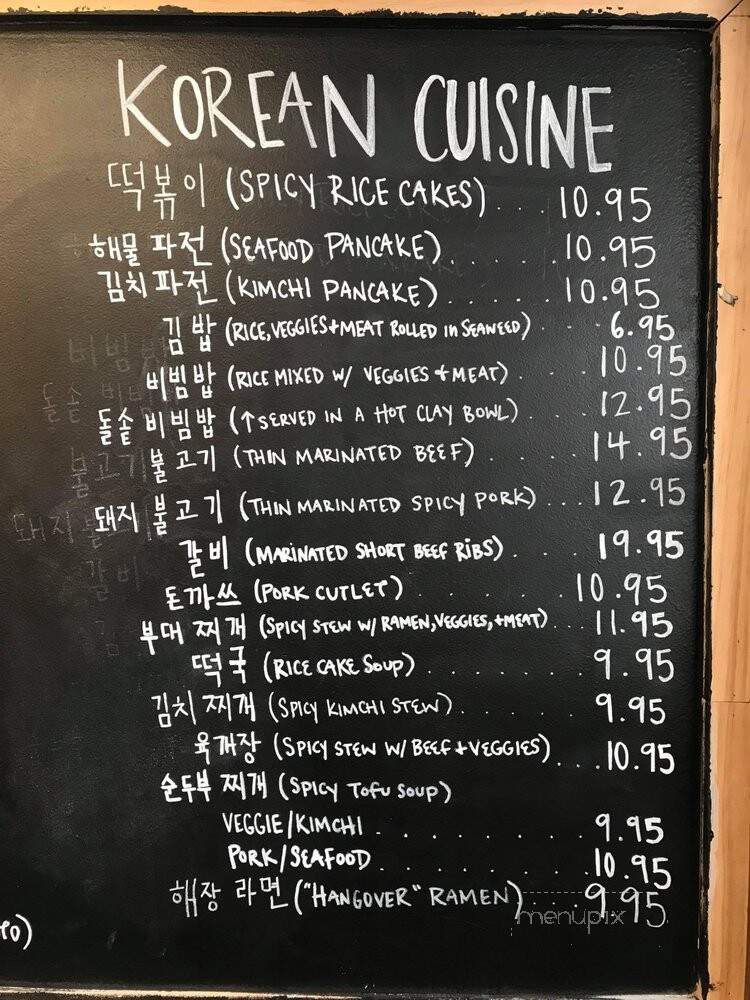 KOREAN CUISINE
떡볶이 (SPICY RICE CAKES) . . . 10.95
해물 파전 (SEAFOOD PANCAKE) . . . . . 10.95
김치 파전 (KIMCHI PANCAKE) . . . . . 10.95
김밥 (RICE, VEGGIES + MEAT ROLLED in SEAWEED) . . . 6.95
비빔밥 (RICE MIXED W/ VEGGIES + MEAT) . . . . 10.95
돌솥 비빔밥 (↑ SERVED IN A HOT CLAY BOWL) . . . . 12.95
불고기 (THIN MARINATED BEEF) . . . . . 14.95
돼지 불고기 (THIN MARINATED SPICY PORK) . . . 12.95
갈비 (MARINATED SHORT BEEF RIBS) . . . . 19.95
돈까쓰 (PORK CUTLET) . . . . . . 10.95
부대 찌개 (SPICY STEW W/ RAMEN, VEGGIES, + MEAT) . . . 11.95
떡국 (RICE CAKE SOUP) . . . . . . 9.95
김치 찌개 (SPICY KIMCHI STEW) . . . . . 9.95
육개장 (SPICY STEW W/ BEEF + VEGGIES) . . . 10.95
순두부 찌개 (SPICY TOFU SOUP)
VEGGIE/KIMCHI . . . . . . . . 9.95
PORK/SEAFOOD . . . . . . . . 10.95
해장 라면 ("HANGOVER" RAMEN) . . . 9.95
menupix
TO)